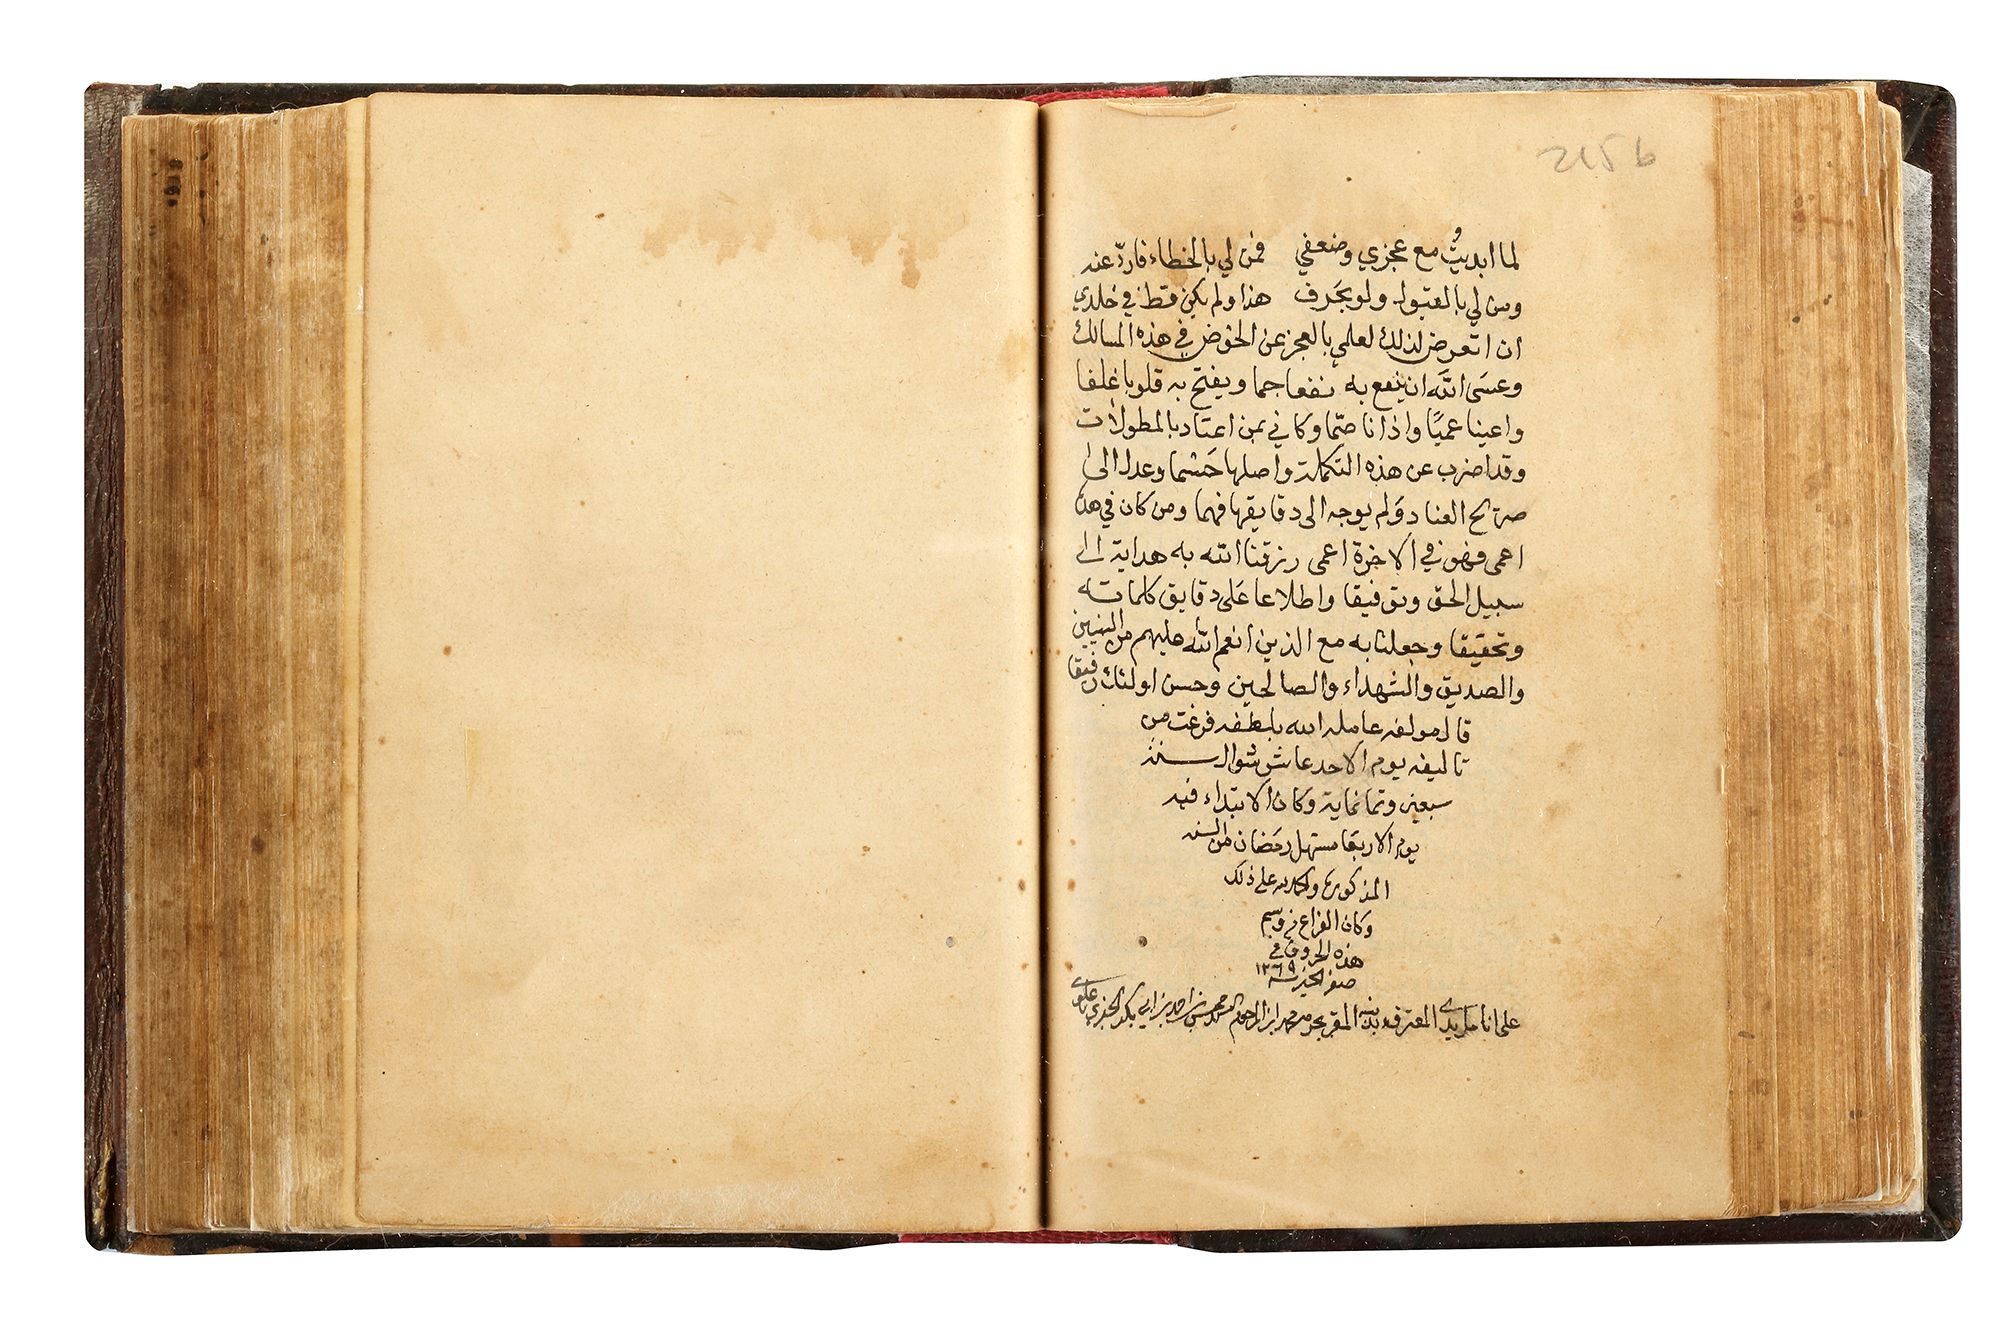 215b
لما ابديتُ مع عجزي وضعفي فمن لي بالخطاء فاردّ عنه
ومن لي بالقبول ولو بحَرف هذا ولم يكن قط في خلدي
ان اتعرض لذلك لعلمي بالعجز عن الخوض في هذه المسالك
وعسَى الله ان ينفع به نفعا جما ويفتح به قلوبا غلفا
واعينا عميًا واذانا صمّا وكاني بمن اعتاد بالمطولات
وقد اضرب عن هذه التكملة واصلها حَسْما وعدل الى
صريح العناد وَلم يوجه الى دقايقها فهما ومن كان في هذه
اعمى فهو في الاخرة اعمى رزقنا الله به هداية الى
سبيل الحق وتوفيقا واطلاعا عَلى دقايق كلماته
وتحقيقا وجعلنا به مع الذين انعم الله عليهم من النبيين
والصديقين والشهداء والصالحين وحسن اولئك رفيقا
قال مولفه عامله الله بلطفه فرغت من
تاليفه يوم الاحد عاشر شوال سنة
سبعين وثمانماية وكان الابتداء فيه
يوم الاربعا مستهل رمضان من السنة
المذكورة والحمد لله على ذلك
وكان الفراغ في وسم
هذه الحروف في
صفر الخير سنة ١٢٦٩
على انامل يدي المعترف بذنبه المقر بجرمه محمد ابن المرحوم احمد بن ابي بكر